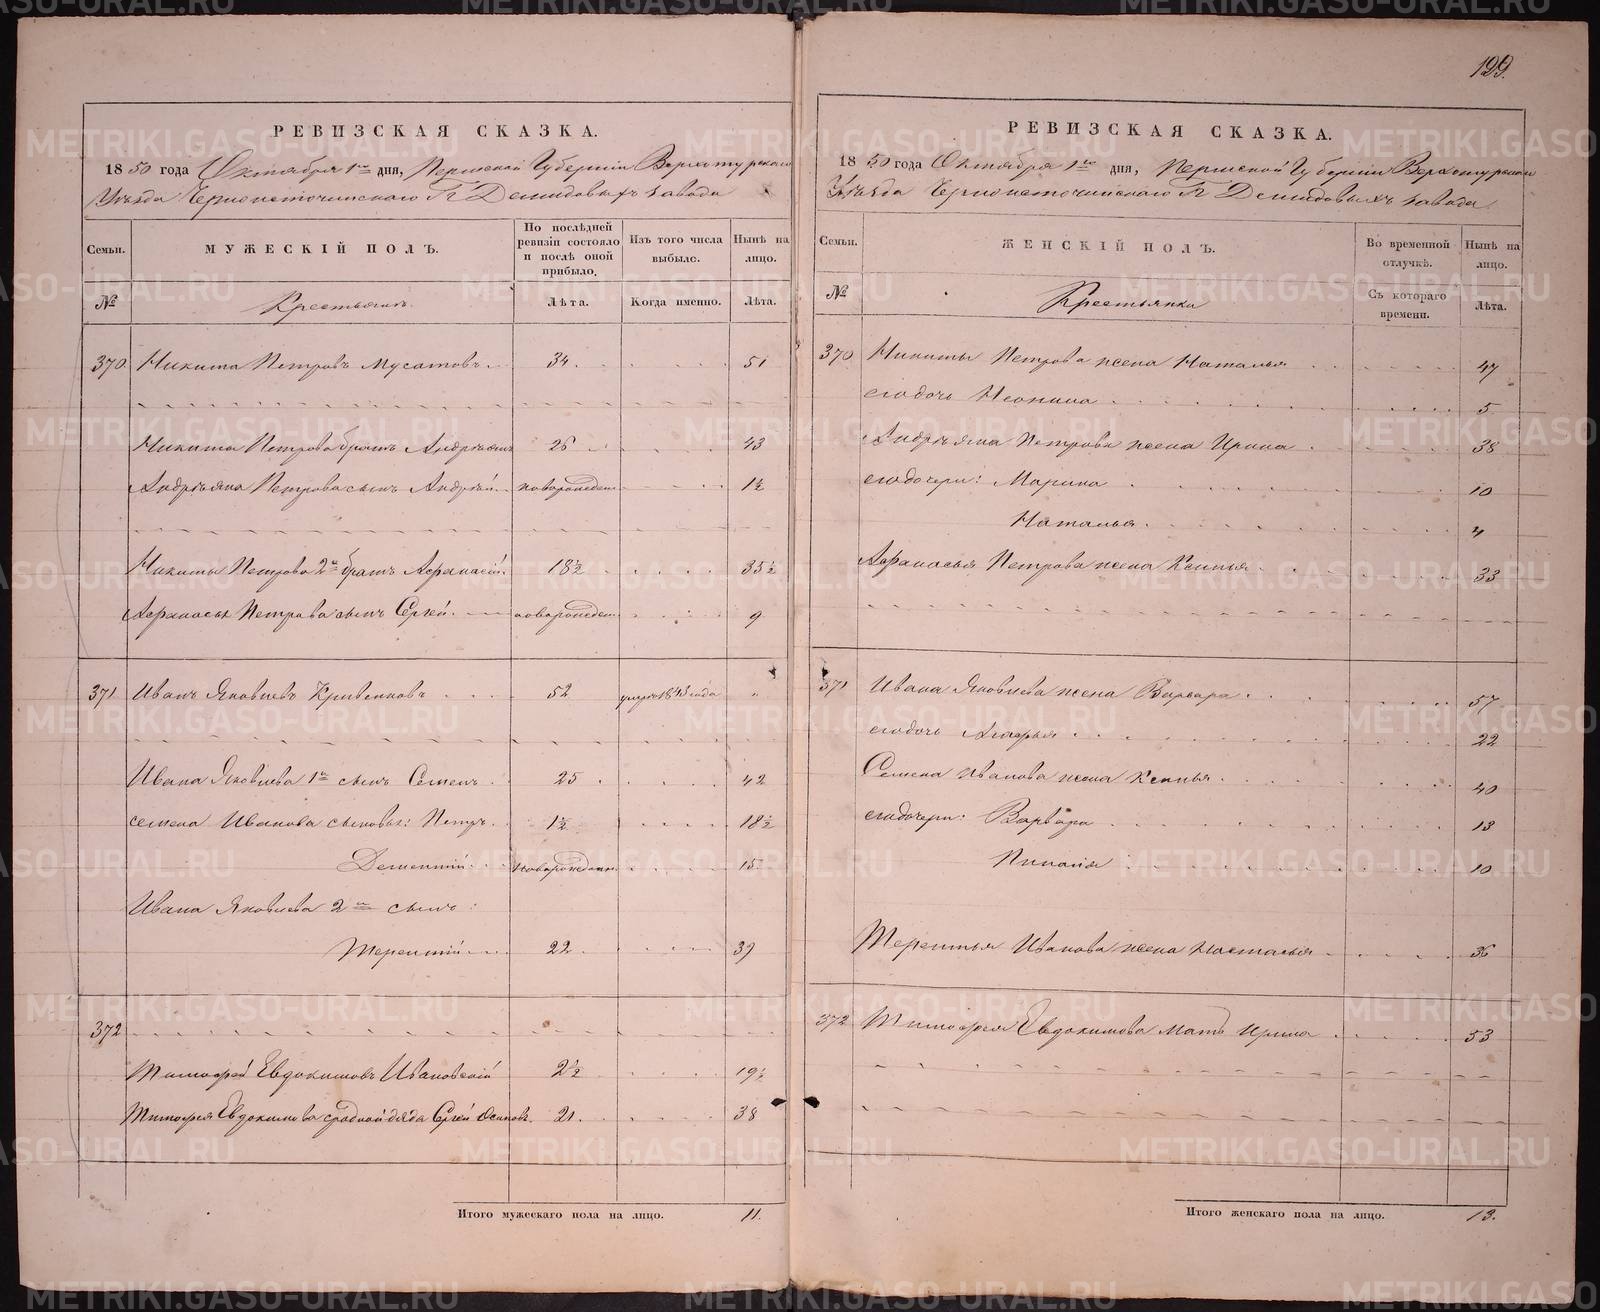 129.
РЕВИЗСКАЯ СКАЗКА.
1850 года Октября 1го дня, Пермской Губерніи Верхотурскаго
Уѣзда Черноисточинскаго Гг Демидовыхъ завода
Семьи.
МУЖЕСКІЙ ПОЛЪ.
По послѣдней ревизіи состояло и послѣ оной прибыло.
Изъ того числа выбыло.
Нынѣ на лицо.
№
Крестьянинъ
Лѣта.
Когда именно.
Лѣта.
370 Никита Петровъ Мусатовъ 34 51
Никита Петрова братъ Андріянъ 26 43
Андріяна Петрова сынъ Андрей новорожден 1½
Никиты Петрова 2й братъ Афанасій 18½ 35½
Афанасья Петрова сынъ Сергѣй новорожден 9
371 Иванъ Яковлевъ Кривенковъ 52 умеръ 1843 года "
Ивана Яковлева 1й сынъ Семенъ 25 42
Семена Иванова сыновья: Петръ 1½ 18½
Дементій новорожден 15
Ивана Яковлева 2й сынъ:
Терентій 22 39
372
Тимофей Евдокимовъ Ивановскій 2½ 19½
Тимофея Евдокимова сродной дядя Сергѣй Осиповъ 21 38
Итого мужескаго пола на лицо. 11.
РЕВИЗСКАЯ СКАЗКА.
1850 года Октября 1го дня, Пермской Губерніи Верхотурскаго
Уѣзда Черноисточинскаго Гг Демидовыхъ завода
Семьи.
ЖЕНСКІЙ ПОЛЪ.
Во временной отлучкѣ.
Нынѣ на лицо.
№
Крестьянка
Съ котораго времени.
Лѣта.
370 Никиты Петрова жена Наталья 47
его дочь Неонила 5
Андріяна Петрова жена Ирина 38
его дочери: Марина 10
Наталья 4
Афанасья Петрова жена Ксенья 33
371 Ивана Яковлева жена Варвара 57
его дочь Агафья 22
Семена Иванова жена Ксенья 40
его дочери: Варвара 13
10
Терентья Иванова жена Настасья 36
372 Тимофея Евдокимова мать Ирина 53
Итого женскаго пола на лицо. 13.
METRIKI.GASO-URAL.RU